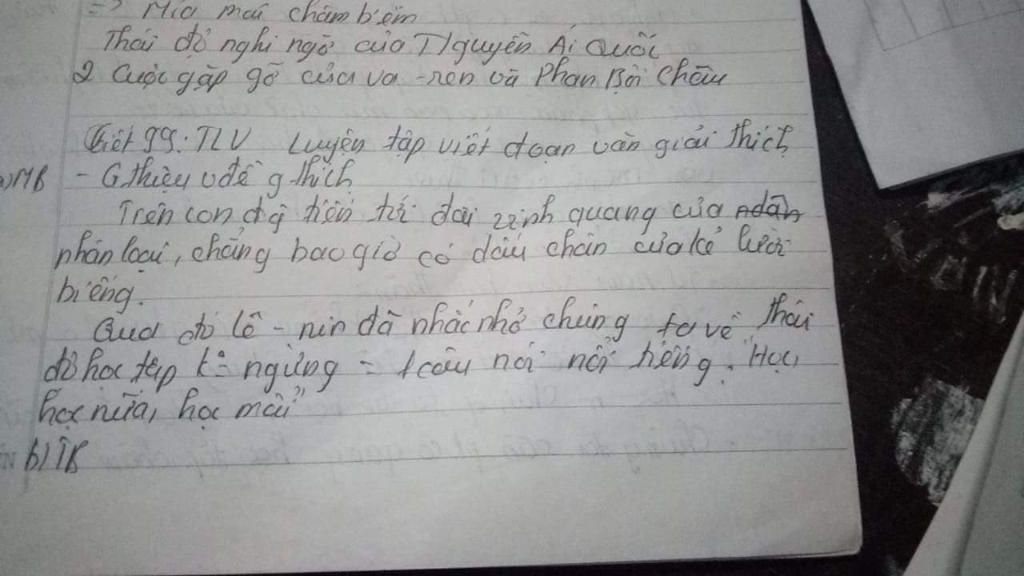 => Mỉa mai châm biếm
Thái độ nghi ngờ của Nguyễn Ái Quốc
2 Cuộc gặp gỡ của va-ren và Phan Bội Châu
Tiết 99: TLV Luyện tập viết đoạn văn giải thích
a) MB - G thiệu vđề g thích
Trên con đg tiến tới đài vinh quang của
nhân loại, chẳng bao giờ có dấu chân của kẻ lười
biếng.
Qua đó Lê-nin đã nhắc nhở chúng ta về thái
độ học tập k ngừng = 1 câu nói nổi tiếng. "Học,
học nữa, học mãi"
b) TB